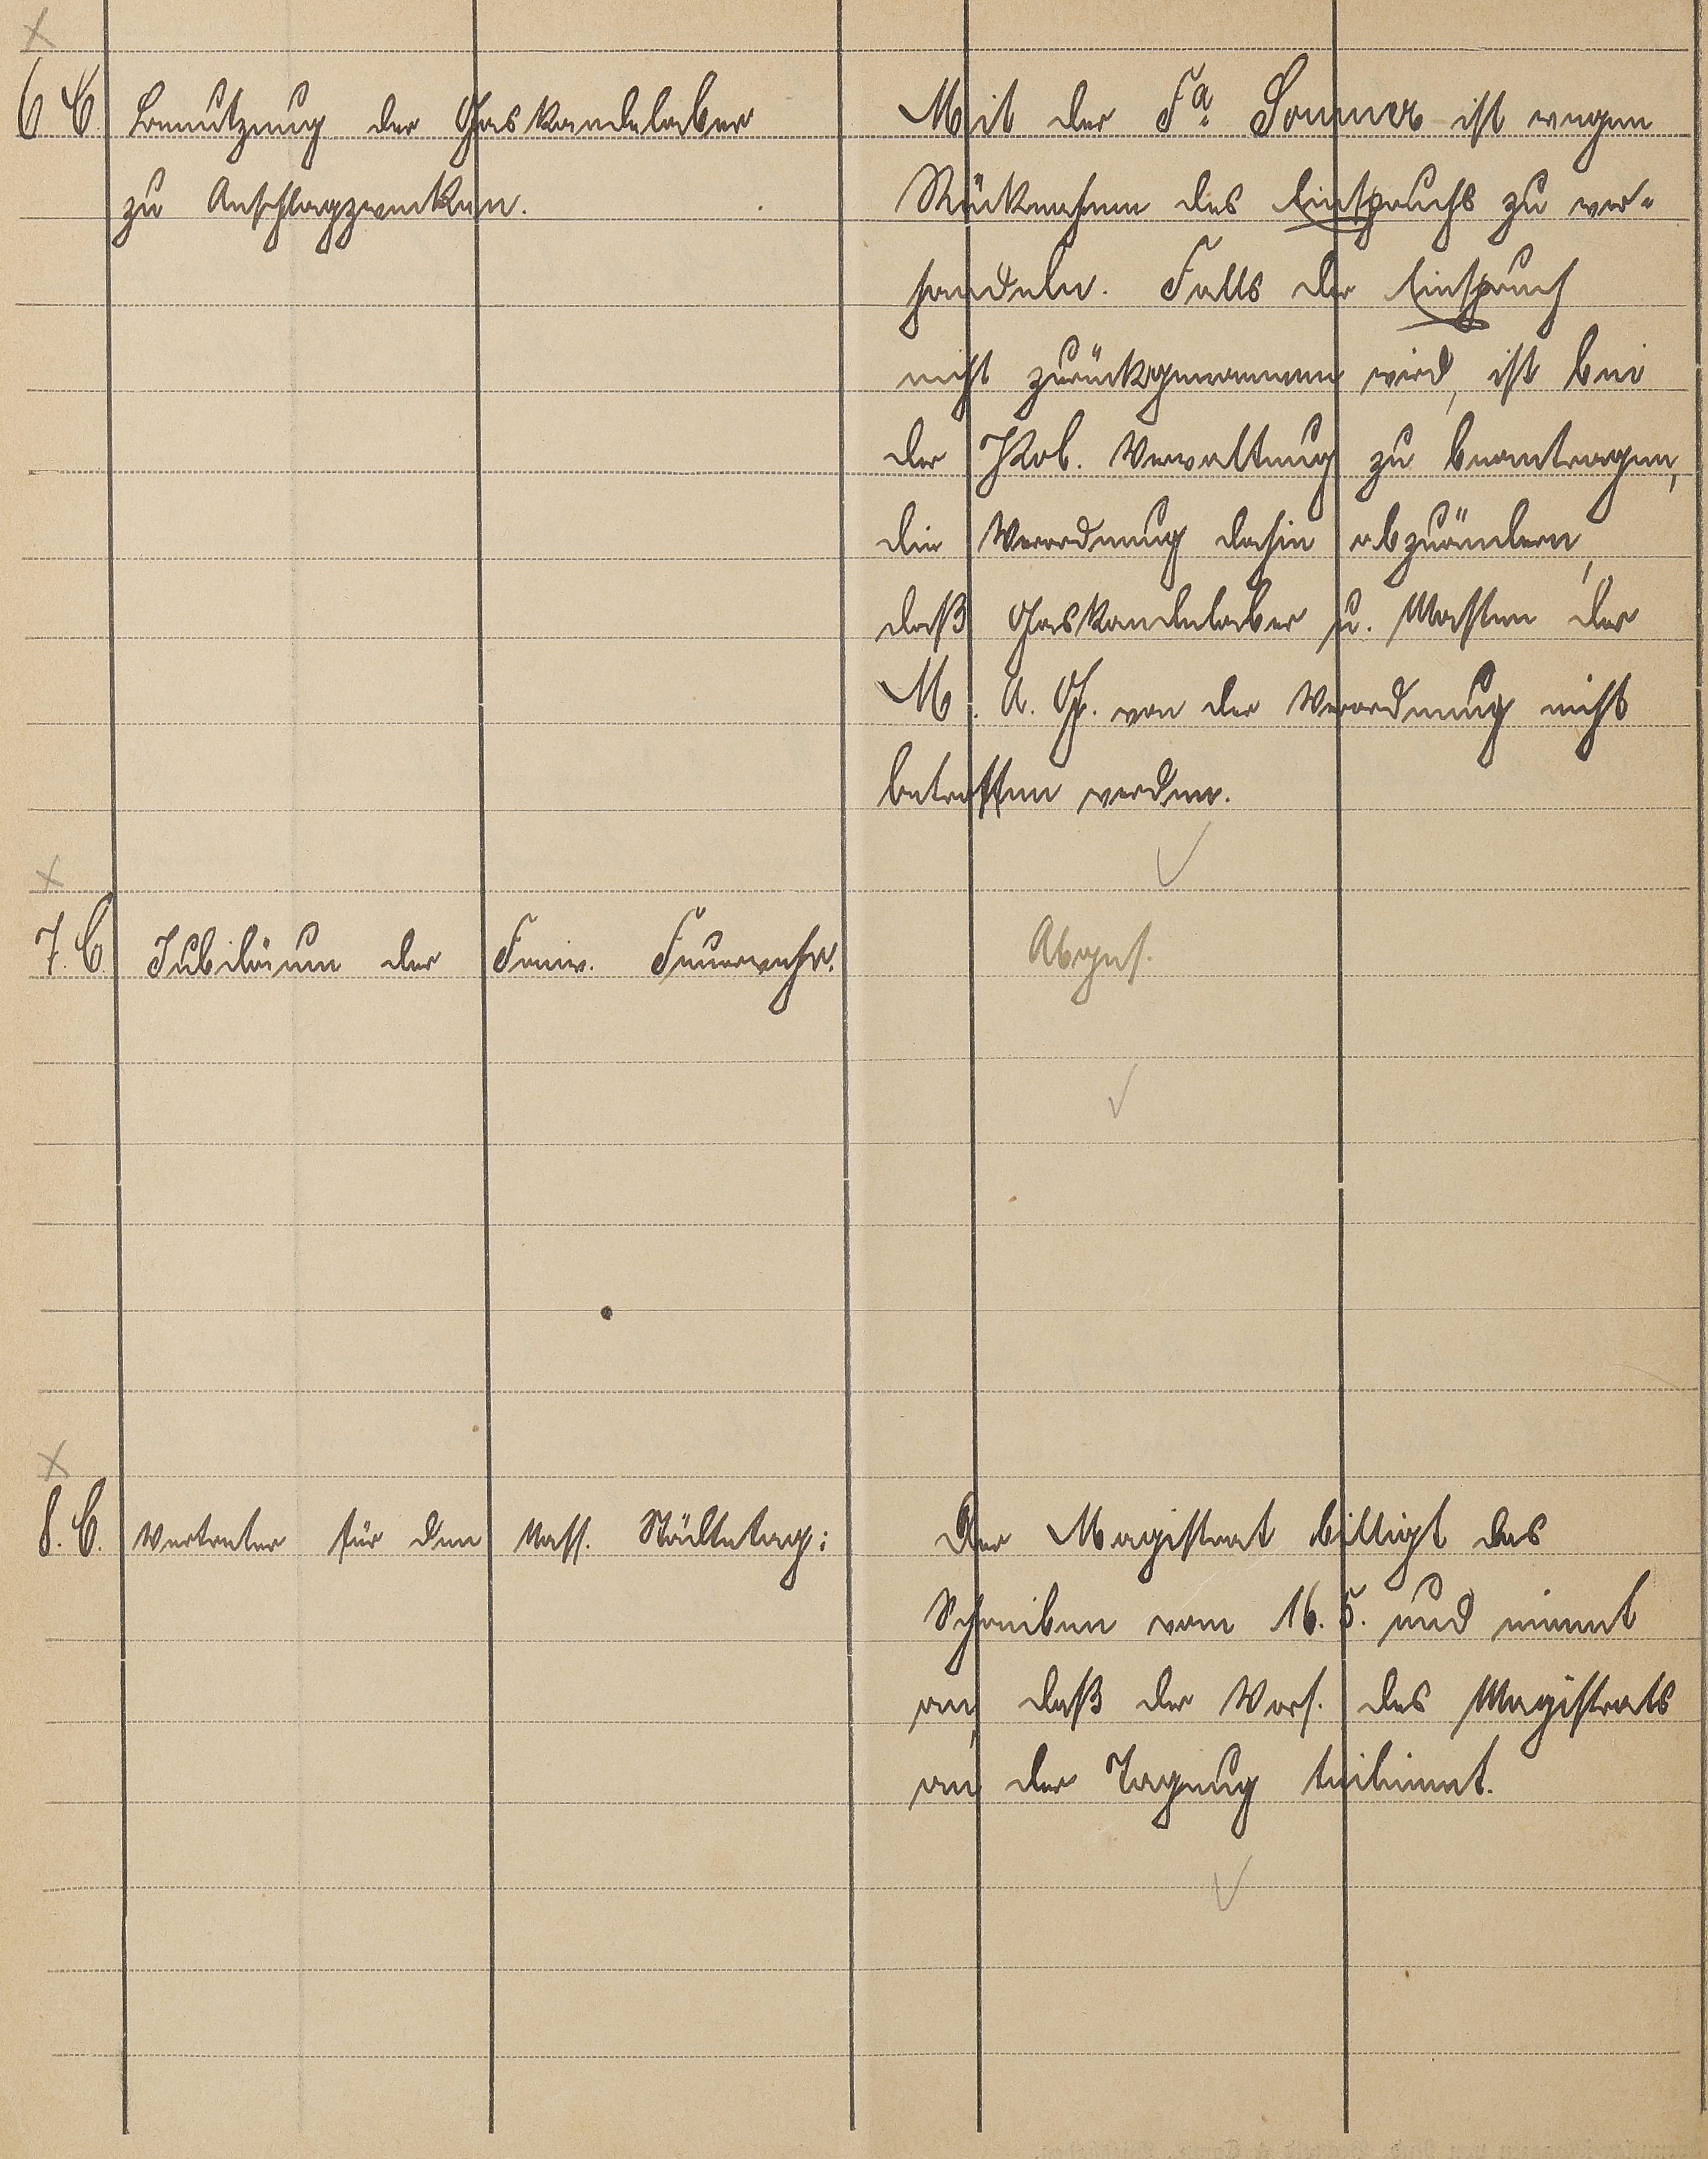 6 C Benutzung der Gaskandelaber
zu Anschlagzwecken.
Mit der Fa. Sommer ist wegen
Rücknahme des Einspruchs zu ver-
handeln. Falls der Einspruch
nicht zurückgenommen wird, ist bei
der Pol. Verwaltung zu beantragen,
die Verordnung dahin abzuändern,
daß Gaskandelaber u. Masten der
M. A. G. von der Verordnung nicht
betroffen werden.
7. C. Jubiläum der Freiw. Feuerwehr.
Abges.
8. C. Vertreter für den Nass. Städtetag:
Der Magistrat billigt das
Schreiben vom 16. 5. und nimmt
an, daß der Vors. des Magistrats
an der Tagung teilnimmt.